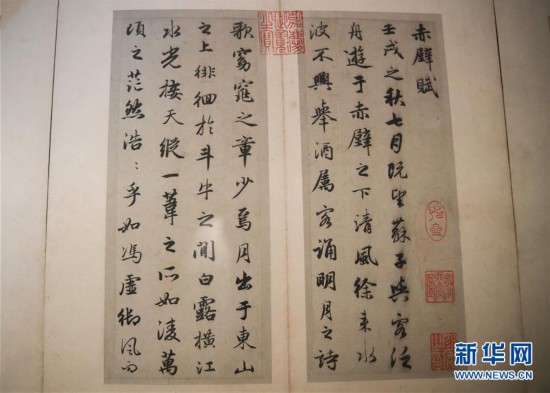 赤壁賦
壬戌之秋七月既望蘇子與客泛
舟遊于赤壁之下清風徐来水
波不興舉酒属客誦明月之詩
歌窈窕之章少焉月出于東山
之上徘徊於斗牛之間白露橫江
水光接天縱一葦之所如凌萬
頃之茫然浩〻乎如馮虛御風而
新华网
WWW.NEWS.CN